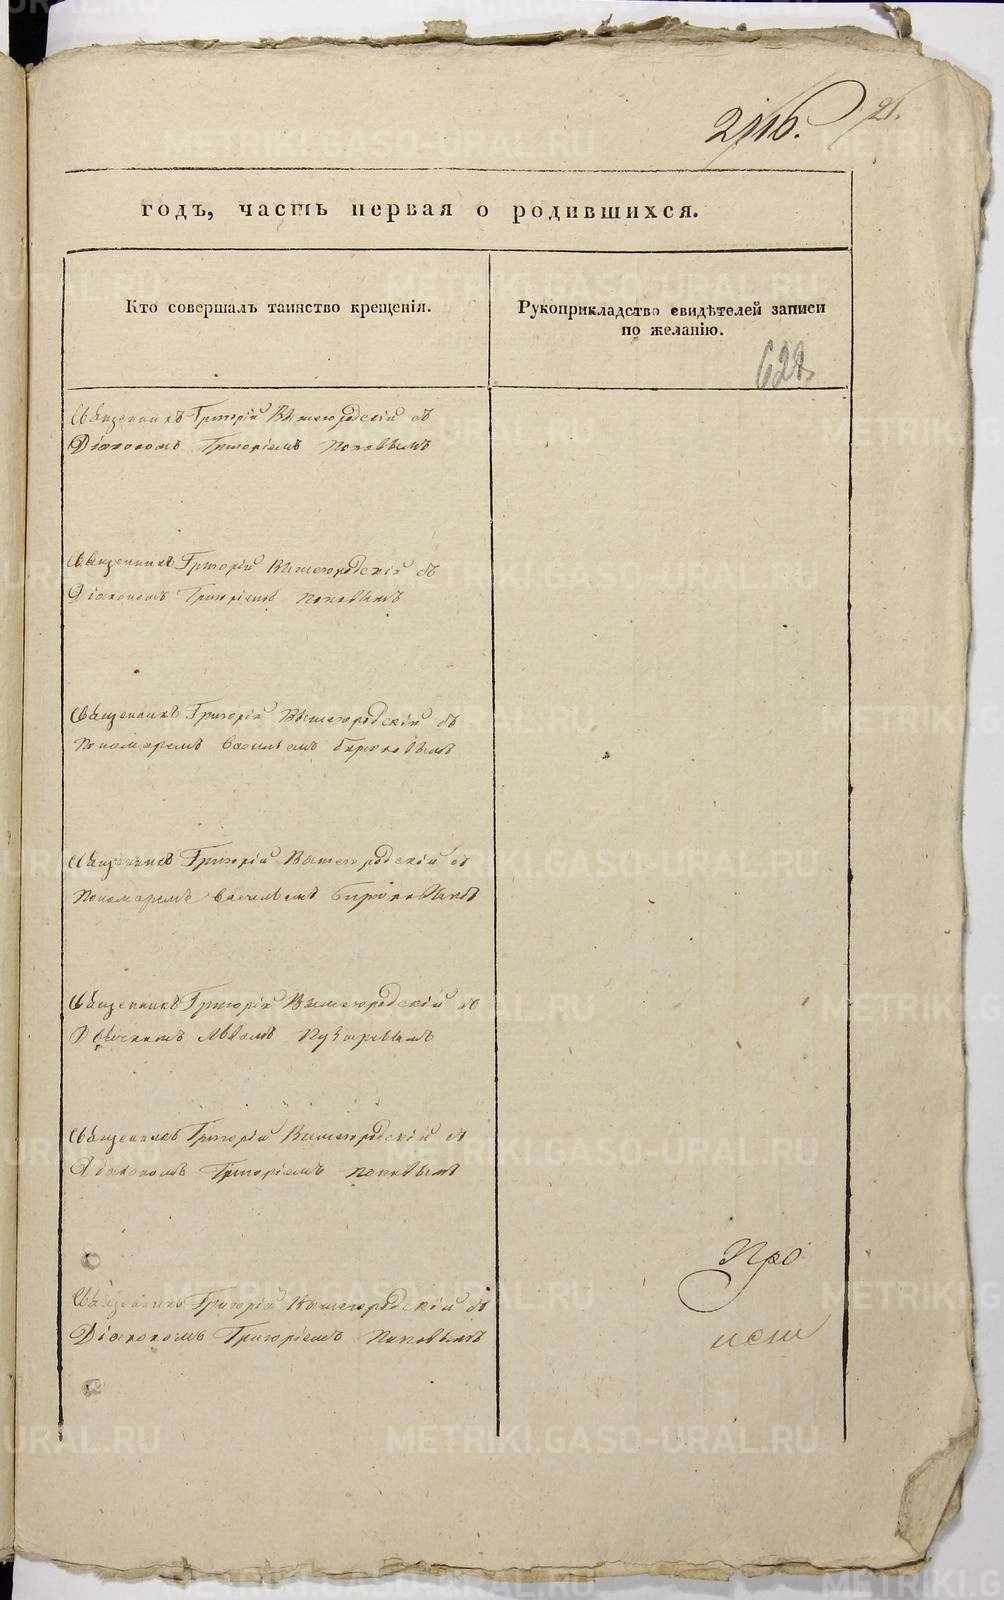 21.
годъ, часть первая о родившихся.
Кто совершалъ таинство крещенія.
Рукоприкладство свидѣтелей записи
по желанію.
628
Священникъ Григорій Вышегородскій съ
Діакономъ Григоріемъ Поповымъ
Священникъ Григорій Вышегородскій съ
Діакономъ Григоріемъ Поповымъ
Священникъ Григорій Вышегородскій съ
Пономаремъ Васильемъ Бирюковымъ
Священникъ Григорій Вышегородскій съ
Пономаремъ Васильемъ Бирюковымъ
Священникъ Григорій Вышегородскій съ
Дьячкомъ Пузыревымъ
Священникъ Григорій Вышегородскій съ
Діакономъ Григоріемъ Поповымъ
Священникъ Григорій Вышегородскій съ
Діакономъ Григоріемъ Поповымъ
METRIKI.GASO-URAL.RU